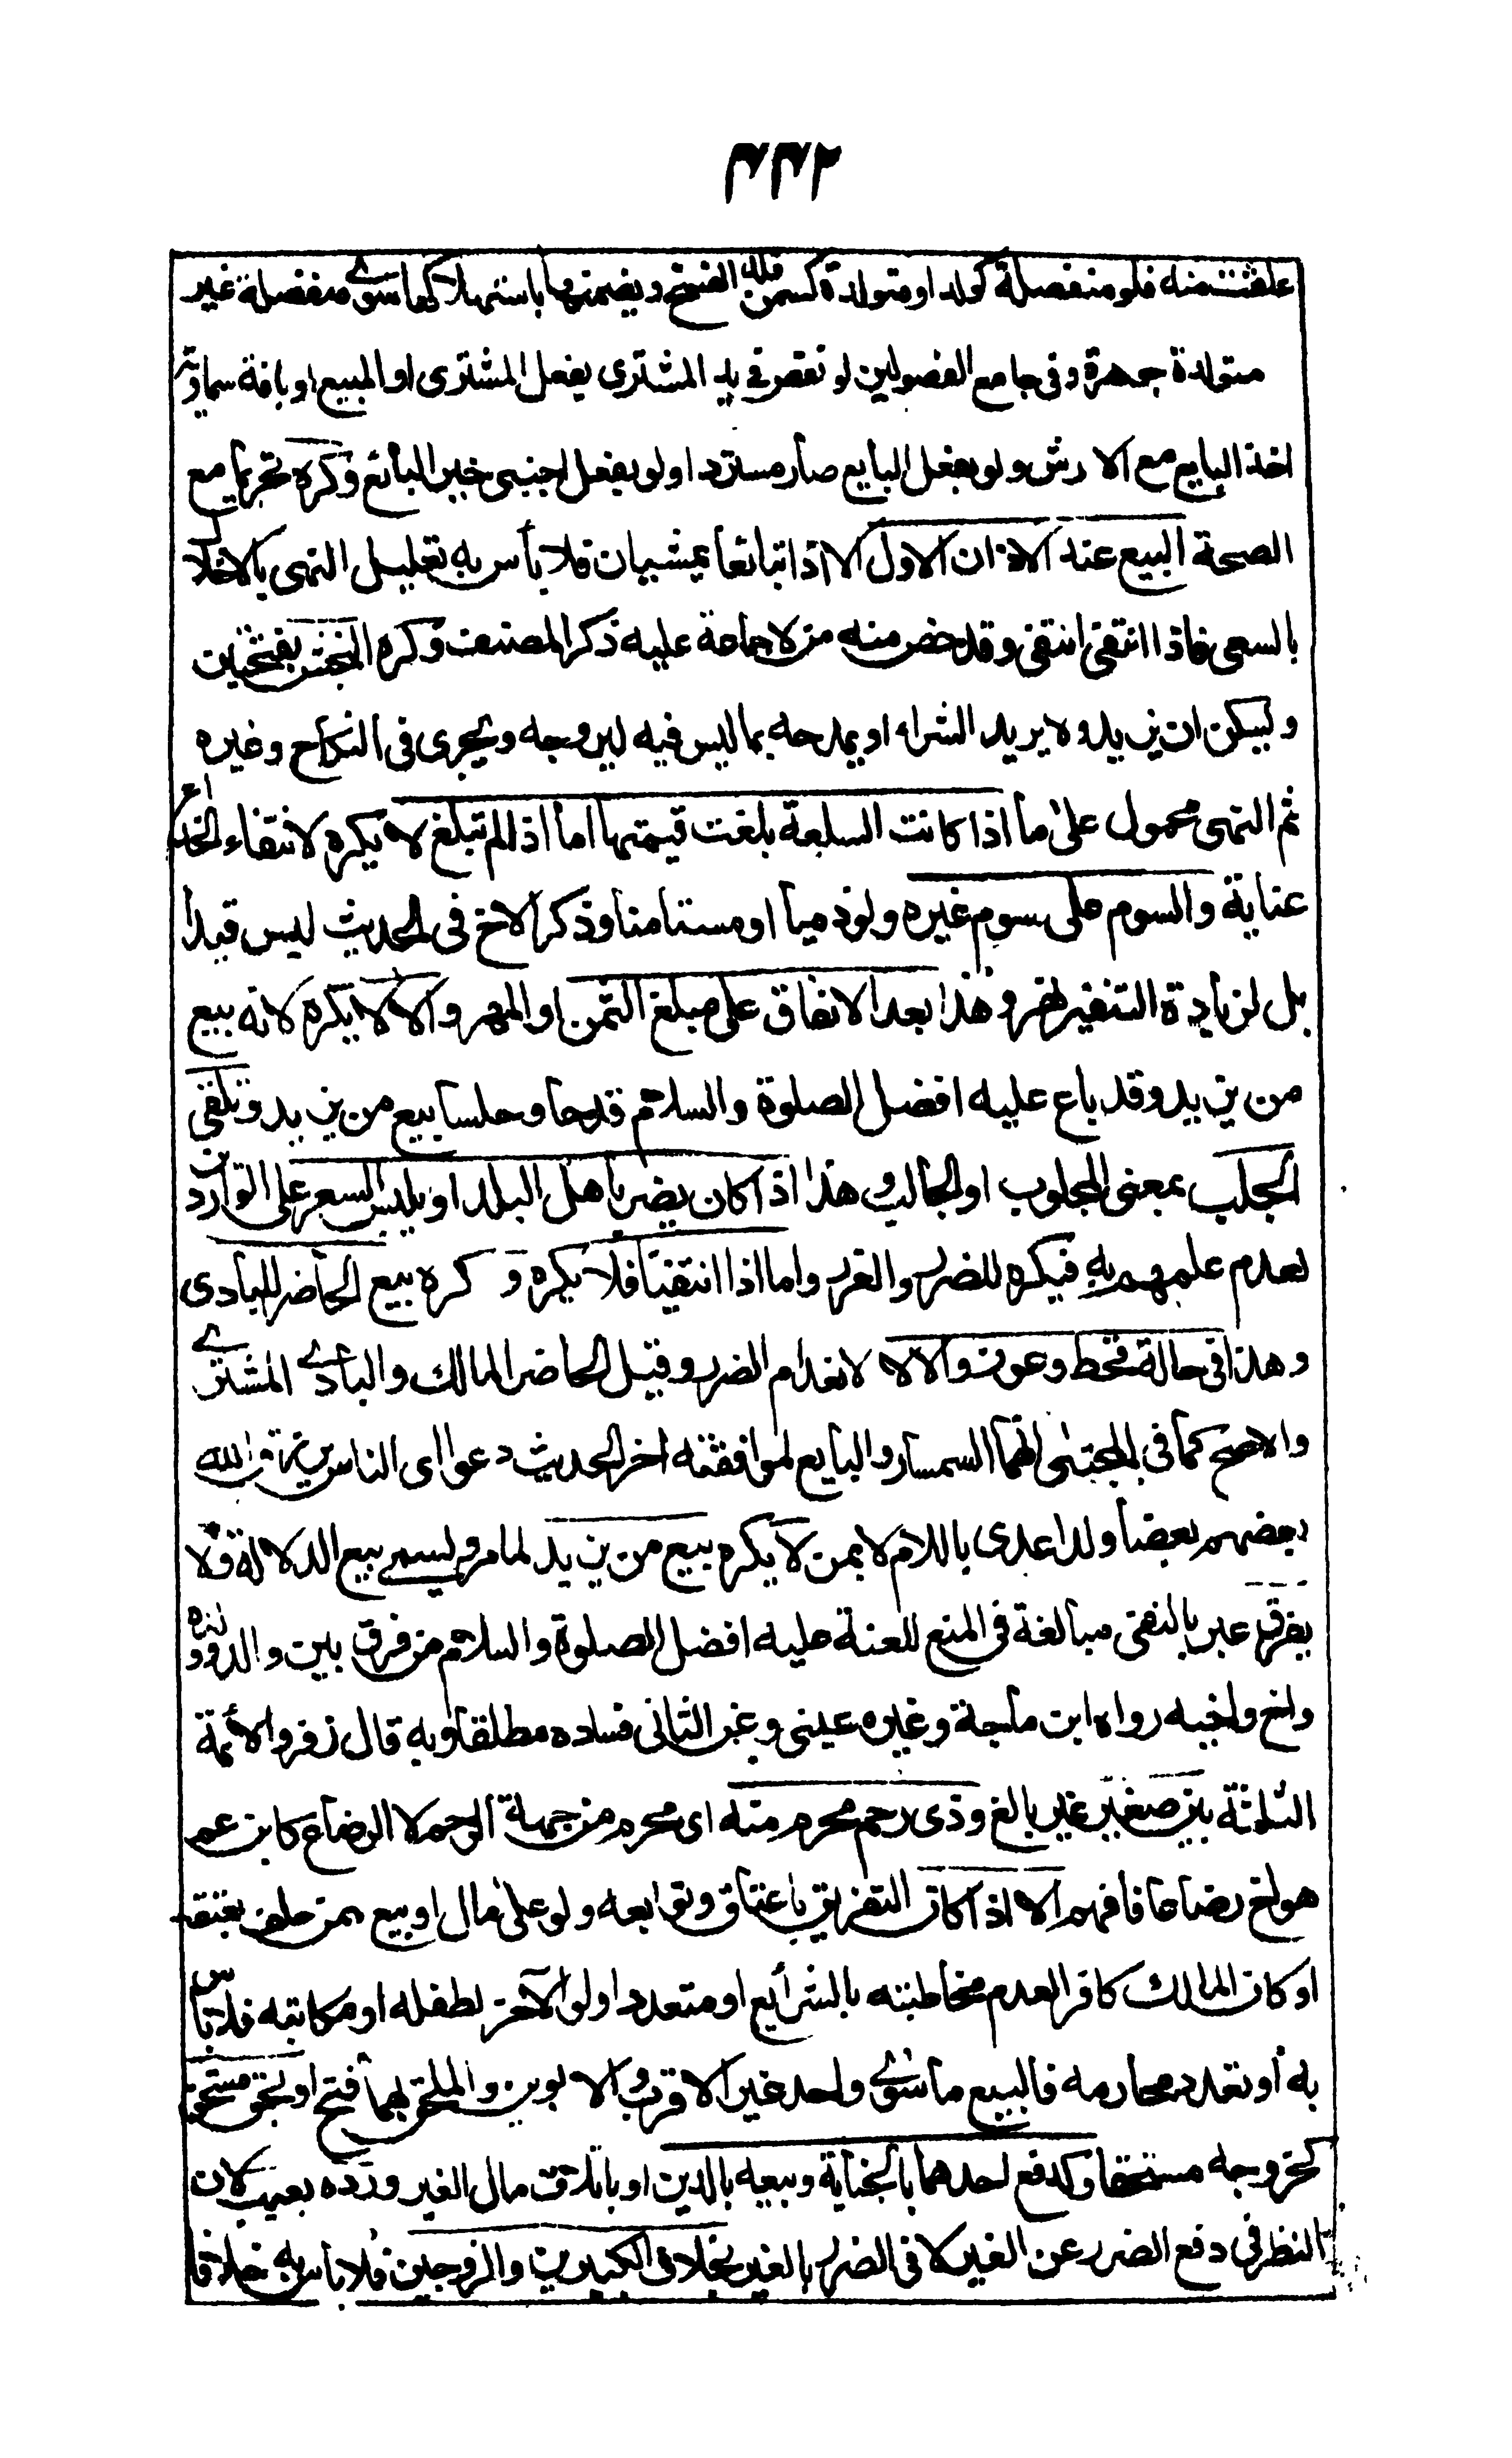 ٣٣٢
علقت منه فلو منفصلة كولد او متولدة كسمن فله الفسخ ويضمنها باستهلاكها سوے منفصلة غير
متولدة جوهرة وفى جامع الفصولين لو نقص فى يد المشترى بفعل المشترى او المبيع او بافة سماوية
اخذ البايع مع الارش ولو بفعل البايع صار مستردا ولو بفعل اجنبى خير البائع وكره تحريما مع
الصحة البيع عند الاذان الاول الا اذا تبائعا يمشيان فلا بأس به تعليل النهى بالاخلال
بالسعى فاذا انتفى انتفى وقد خص منه من لا جماعة عليه ذكر المصنف وكره النجش بفتحتين
وليسكن ان يزيد ولا يريد الشراء او يمدحه بما ليس فيه ليروجه ويجرى فى النكاح وغيره
ثم النهى محمول على ما اذا كانت السلعة بلغت قيمتها اما اذا لم تبلغ لا يكره لانتفاء الخداع
عناية والسوم على سوم غيره ولو ذميا او مستامنا وذكر الاخ فى الحديث ليس قيدا
بل لزيادة التنفير نهر وهذا بعد الاتفاق على مبلغ الثمن او المهر والا لا يكره لانه بيع
من يزيد وقد باع عليه افضل الصلوة والسلام قدحا وحلسا بيع من يزيد وتلقى
الجلب بمعنى المجلوب او الجالب وهذا اذا كان يضر باهل البلد او يلبس السعر على الواردين
لعدم علمهم به فيكره للضرر والغرر واما اذا انتفيا فلا يكره و كره بيع الحاضر للبادى
وهذا فى حالة قحط وعوز والا لا لانعدام الضرر وقيل الحاضر المالك والبادے المشترے
والاصح كما فى المجتبى انهما السمسار والبايع لموافقته اخر الحديث دعوا اى الناس يرزق الله
بعضهم بعضا ولذا عدى باللام لا بمن لا يكره بيع من يزيد لما مر ويسمے بيع الدلالة ولا
يفرق عبر بالنفى مبالغة فى المنع للعنه عليه افضل الصلوة والسلام من فرق بين والد وولده
واخ واخيه رواه ابن ماجة وغيره عينى وعن الثانى فساده مطلقا وبه قال زفر والائمة
الثلثة بين صغير غير بالغ وذى رحم محرم منه اى محرم من جهة الرحم لا الرضاع كابن عم
هو اخ رضاعا فافهم الا اذا كان التفريق باعتاق وتوابعه ولو على مال او بيع ممن حلف بعتقه
او كان المالك كافرا لعدم مخاطبته بالشرائع او متعددا ولو الآخر لطفله او مكاتبه فلا بأس
به أو تعدد محارمه فله بيع ما سوى واحد غير الاقرب والابوين والملحق بهما فتح او بحق مستحق
كخروجه مستحقا وكدفع احدهما بالجناية وبيعه بالدين او باتلاف مال الغير ورده بعيب لان
النظر فى دفع الضرر عن الغير لا فى الضرر بالغير بخلاف الكبيرين والزوجين فلا بأس به خلافا